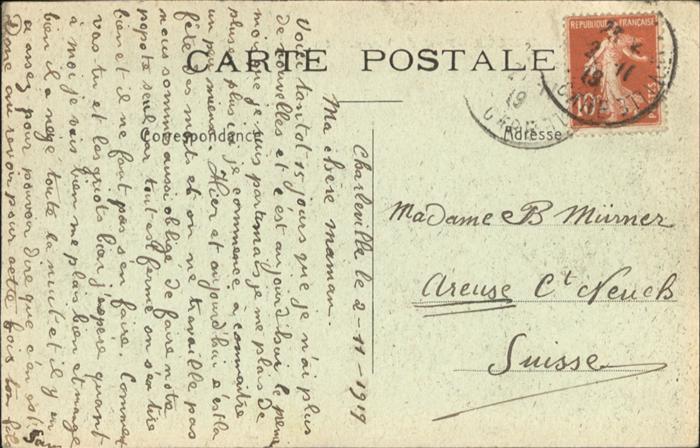 CARTE POSTALE
Correspondance
Adresse
REPUBLIQUE FRANÇAISE
10
POSTES
Charleville le 2-11-1919
Ma chère maman.
Voici tantot 15 jours que je n'ai plus
de nouvelles et c'est aujourd'hui le
mois que je suis parti mais je me plais de
plus en plus car je commence a connaitre
un peu mieux. Hier et aujourd'hui c'est la
fête des morts et on ne travaille pas
nous sommes aussi obligé de faire notre
popote seul car tout est fermé on s'en tire
bien et il ne faut pas s'en faire. Comment
vas tu et les quiots bien j'espère quant
à moi je vais bien me plais bien et mange
bien il a neigé toute la nuit et il y en
a assez pour pouvoir dire que c'en est
Donc au revoir pour cette fois ton
Madame B Mürner
Areuse Ct Neuch
Suisse